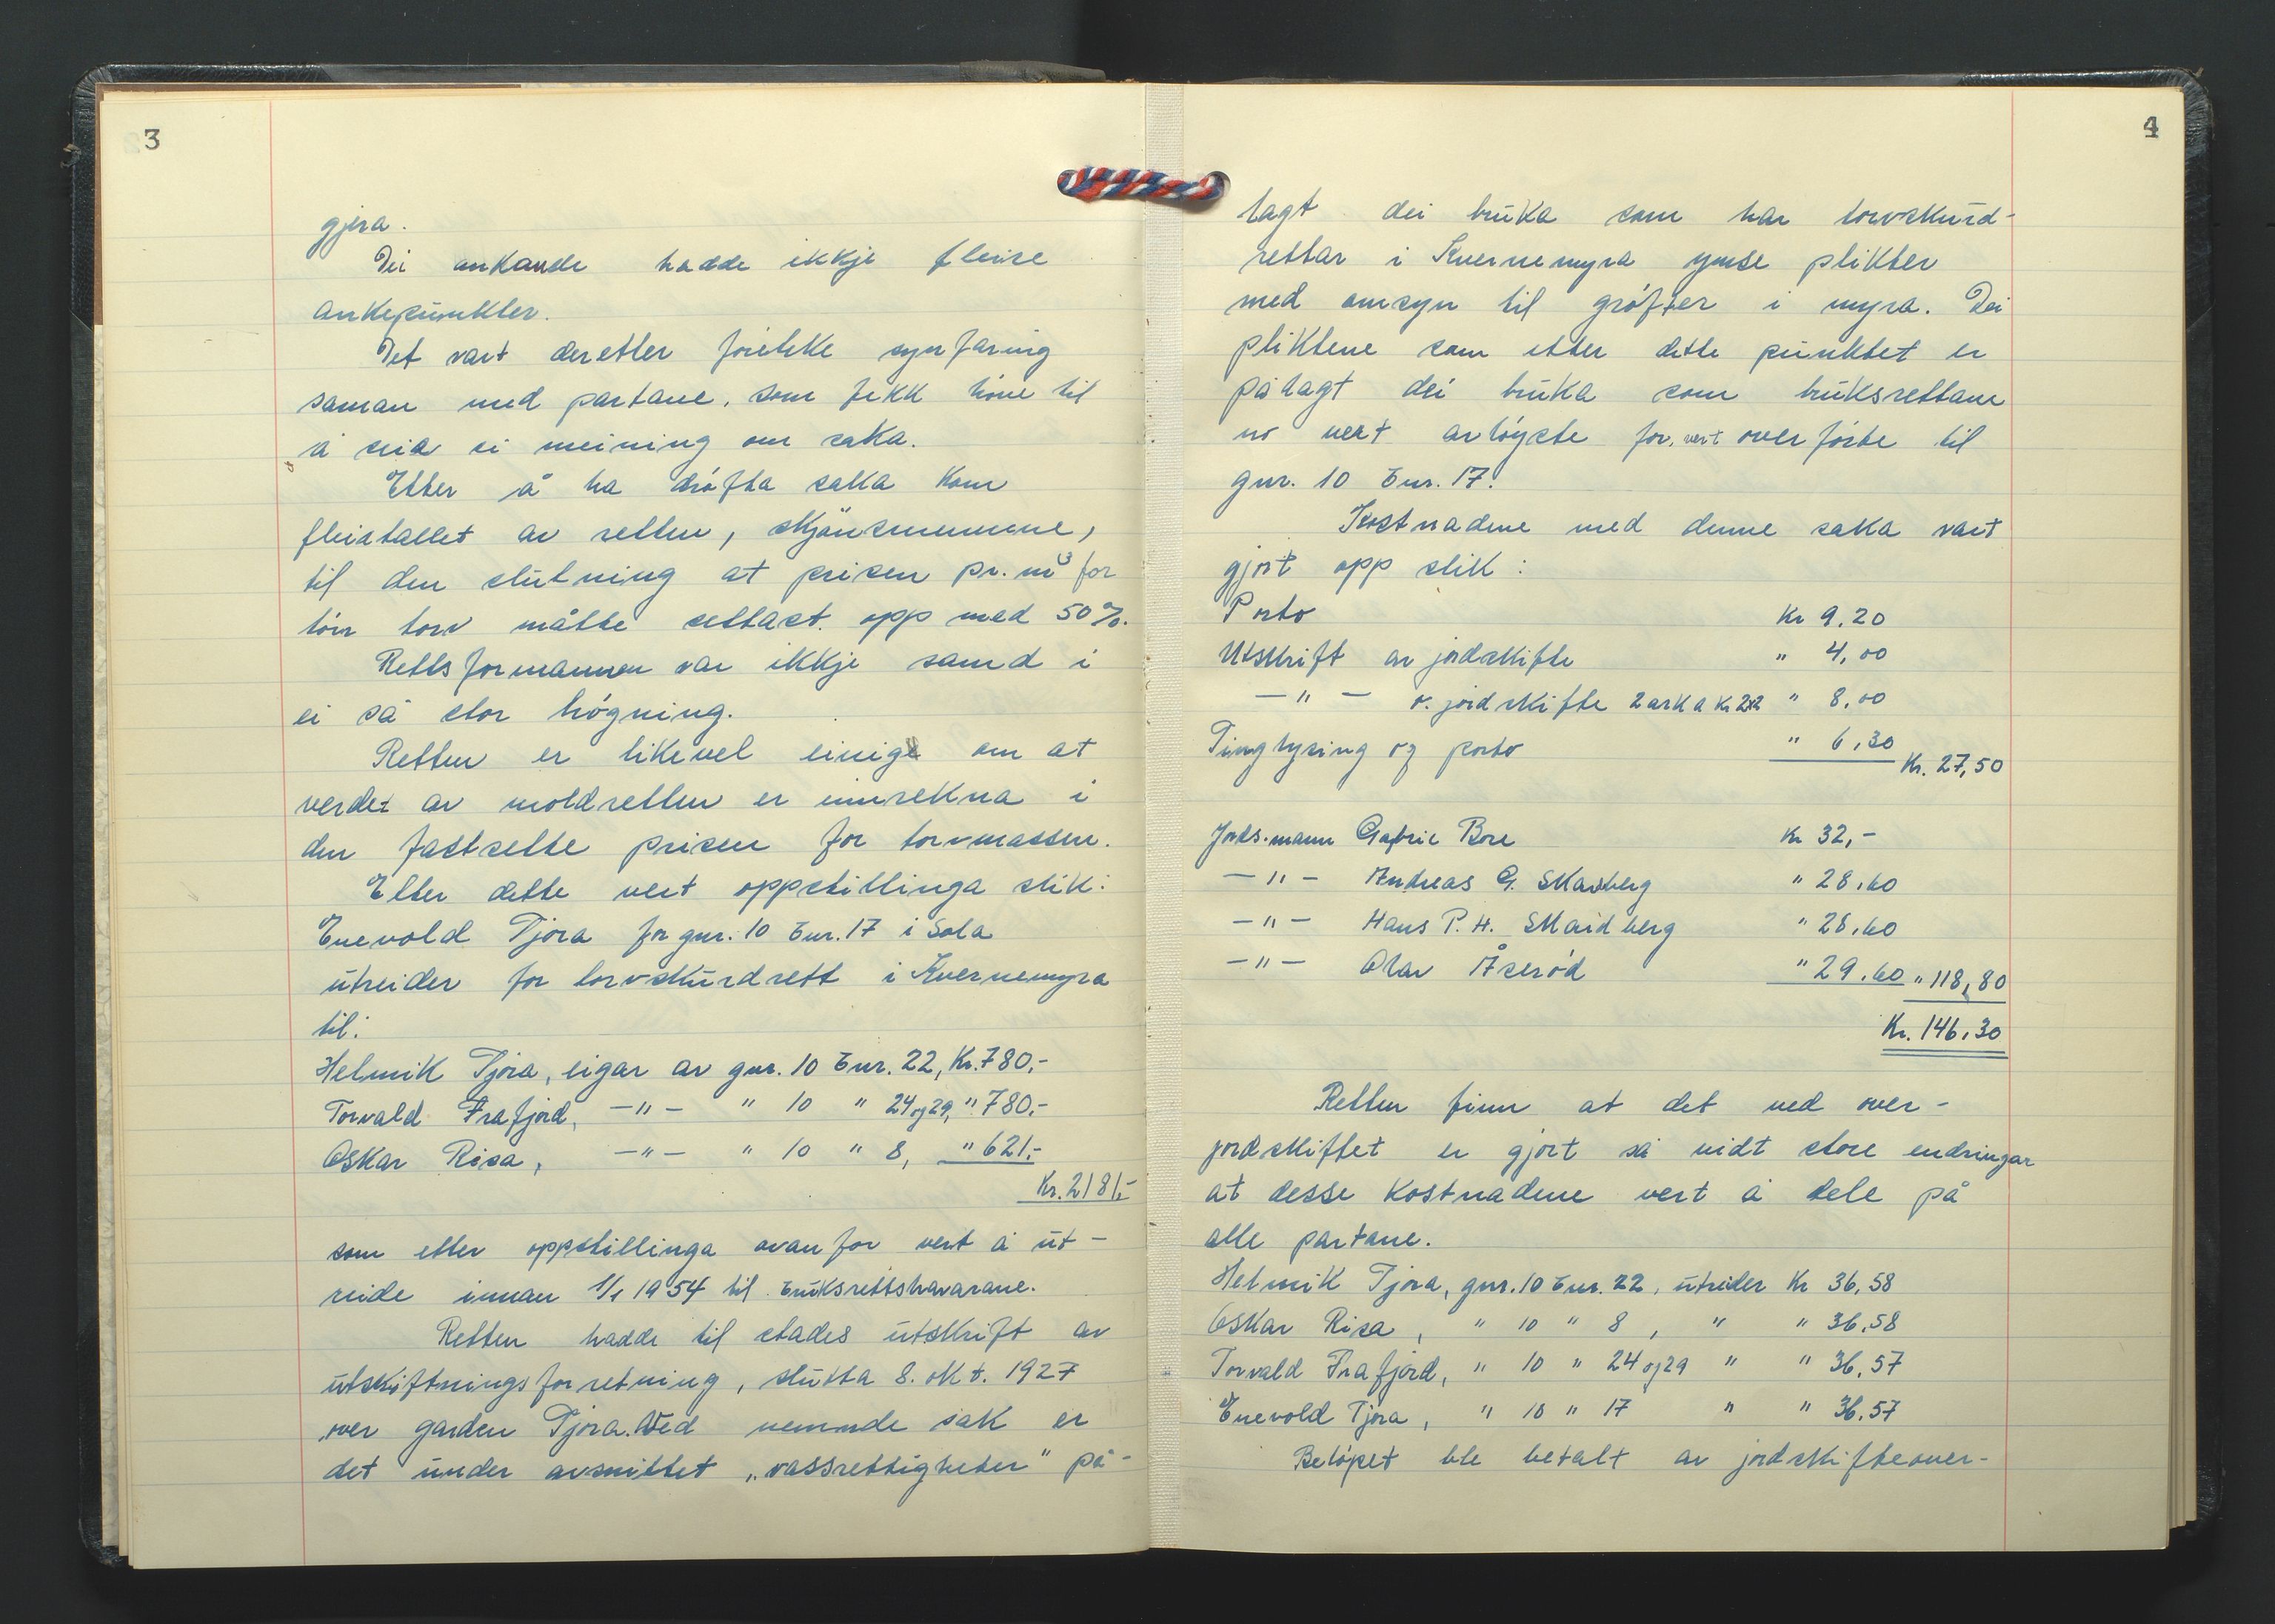 3
gjera.
Dei ankande hadde ikkje fleire
ankepunkter.
Det vart deretter företekke synfaring
saman med partane, som fekk höve til
å seia ei meining om saka.
Etter å ha dröfta saka kom
fleirtallet av retten, skjönsmennene,
til den slutning at prisen pr. m³ for
törr torv måtte settast opp med 50 %.
Rettsformannen var ikkje samd i
ei så stor högning.
Retten er likevel einige om at
verdet av moldretten er innrekna i
den fastsette prisen for torvmassen.
Etter dette vert oppstillinga slik:
Enevold Tjora for gnr. 10 bnr. 17 i Sola
utreider for torvskurdrett i Kvernemyra
til:
Helmik Tjora, eigar av gnr. 10 bnr. 22, Kr. 780,-
Torvald Frafjord, —"— " 10 " 24 og 29, " 780,-
Oskar Risa, —"— " 10 " 8, " 621,-
Kr. 2181,-
som etter oppstillinga ovanfor vert å ut-
reide innan 1/1 1954 til bruksrettshavarane.
Retten hadde til stades utskrift av
utskiftningsforretning, slutta 8. okt. 1927
over garden Tjora. Ved nemnde sak er
det under avsnittet „vassrettigheter" på-
4
lagt dei bruka som har torvskurd-
rettar i Kvernemyra ymse plikter
med omsyn til gröfter i myra. Dei
pliktene som etter dette punktet er
pålagt dei bruka som bruksrettane
no vert avlöyste for, vert overförte til
gnr. 10 bnr. 17.
Kostnadene med denne saka vart
gjort opp slik:
Porto Kr 9,20
Utskrift av jordskifte " 4,00
—"— o. jordskifte 2 ark a kr 2x2 " 8,00
Tinglysing og porto " 6,30
Kr. 27,50
Jords.mann Gabriel Bore Kr 32,-
—"— Andreas G. Skasberg " 28,60
—"— Hans P. H. Skaidberg " 28,60
—"— Olav Åseröd " 29,60 " 118,80
Kr. 146,30
Retten finn at det ved over-
jordskiftet er gjort så vidt store endringar
at desse kostnadene vert å dele på
alle partane.
Helmik Tjora, gnr. 10 bnr. 22, utreider Kr 36,58
Oskar Risa, " 10 " 8, " " 36,58
Torvald Frafjord, " 10 " 24 og 29 " " 36,57
Enevold Tjora, " 10 " 17 " " 36,57
Belöpet ble betalt av jordskifteover-